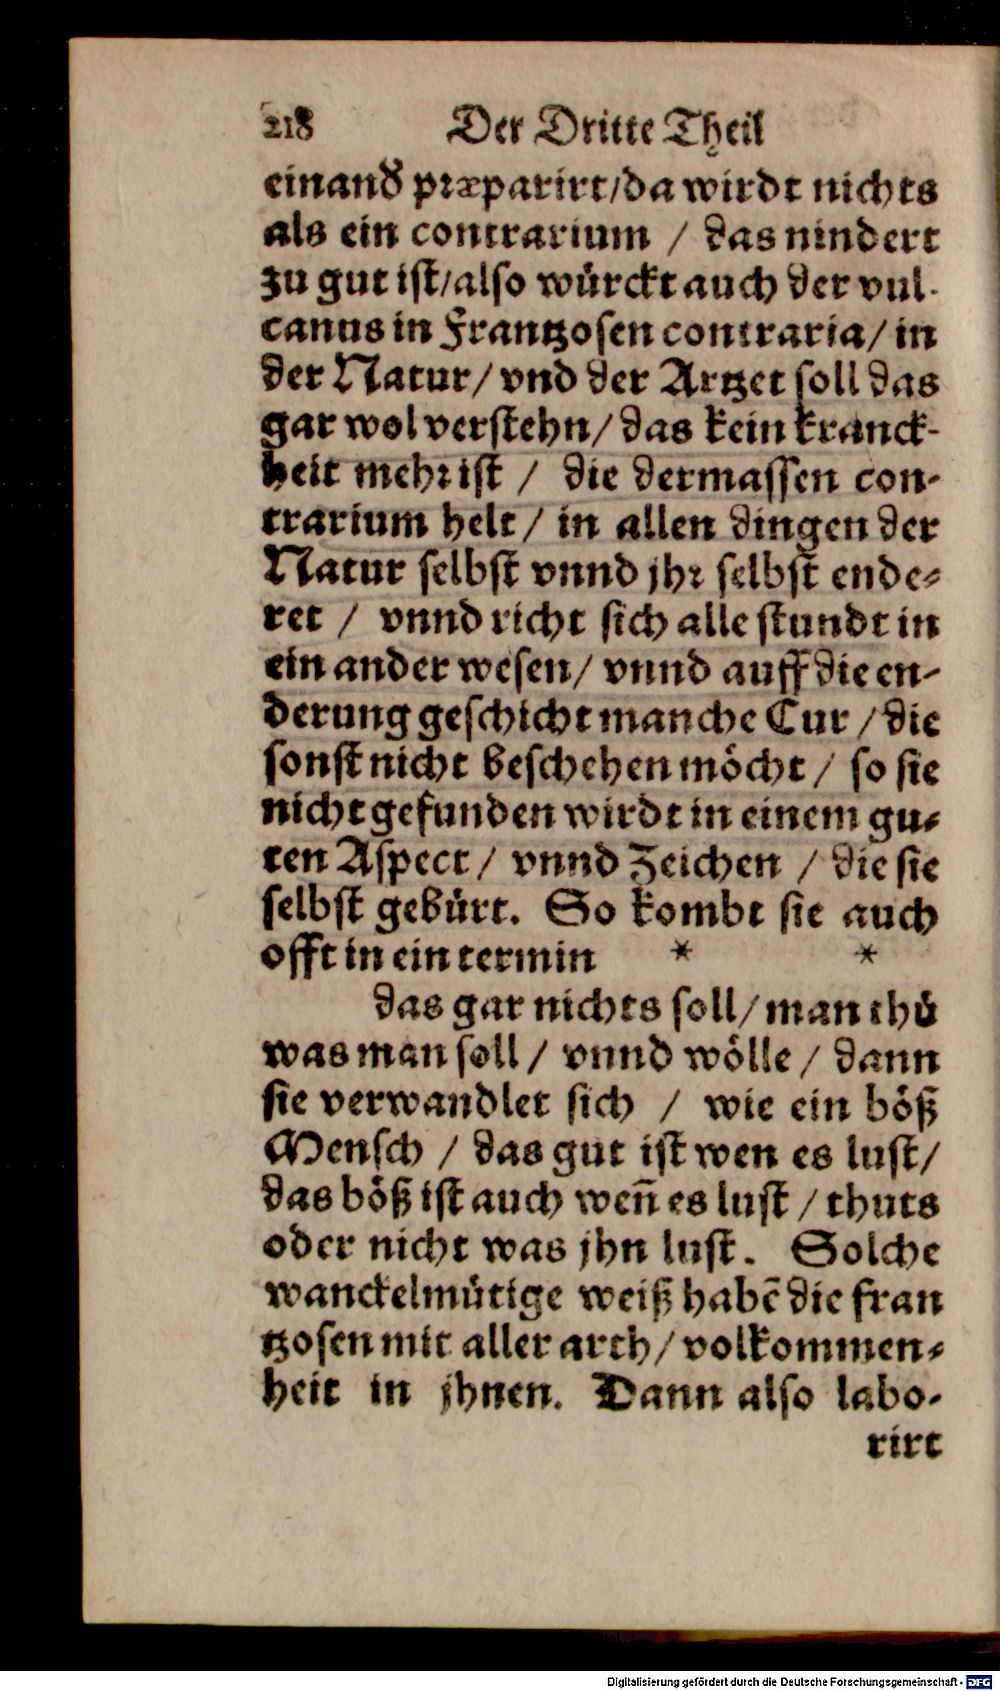 218 Der Dritte Theil
einand' præparirt/da wirdt nichts
als ein contrarium / das nindert
zu gut ist/also würckt auch der vul-
canus in Frantzosen contraria/ in
der Natur/ vnd der Artzet soll das
gar wol verstehn/ das kein kranck-
heit mehr ist / die dermassen con-
trarium helt / in allen dingen der
Natur selbst vnnd jhr selbst ende-
ret / vnnd richt sich alle stundt in
ein ander wesen/ vnnd auff die en-
derung geschicht manche Cur / die
sonst nicht beschehen möcht / so sie
nicht gefunden wirdt in einem gu-
ten Aspect / vnnd Zeichen / die sie
selbst gebürt. So kombt sie auch
offt in ein termin * *
das gar nichts soll/ man thů
was man soll / vnnd wölle / dann
sie verwandlet sich / wie ein böß
Mensch / das gut ist wen es lust/
das böß ist auch weñ es lust / thuts
oder nicht was jhn lust. Solche
wanckelmütige weiß habẽ die fran
tzosen mit aller arth/ volkommen-
heit in jhnen. Dann also labo-
rirt
Digitalisierung gefördert durch die Deutsche Forschungsgemeinschaft - DFG